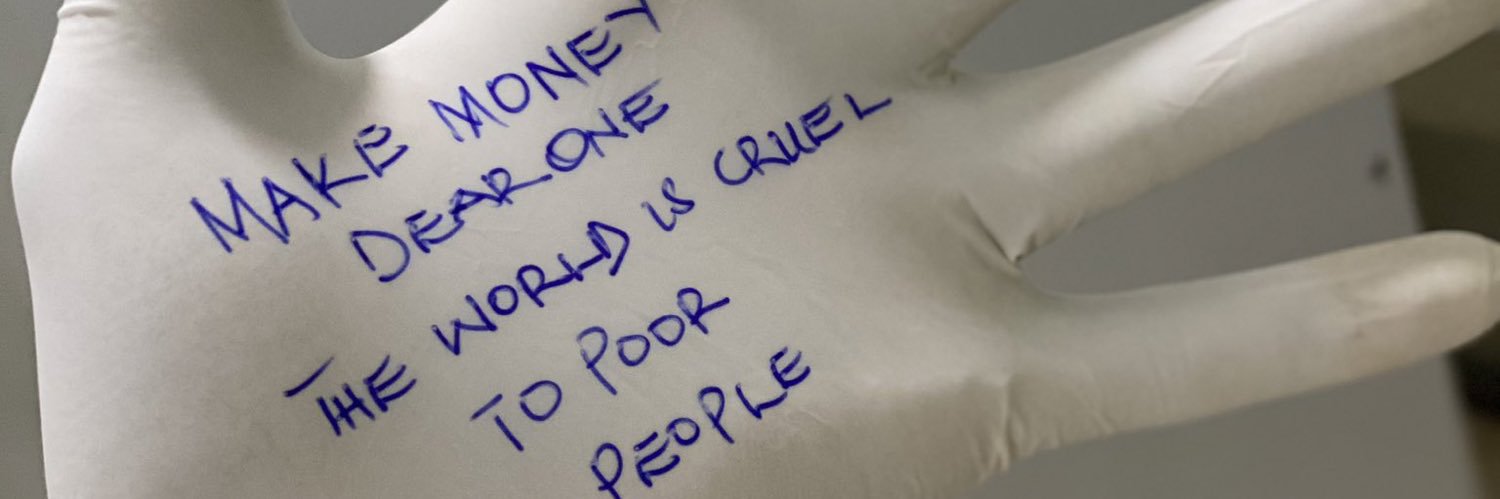 MAKE MONEY
DEAR ONE
THE WORLD IS CRUEL
TO POOR
PEOPLE